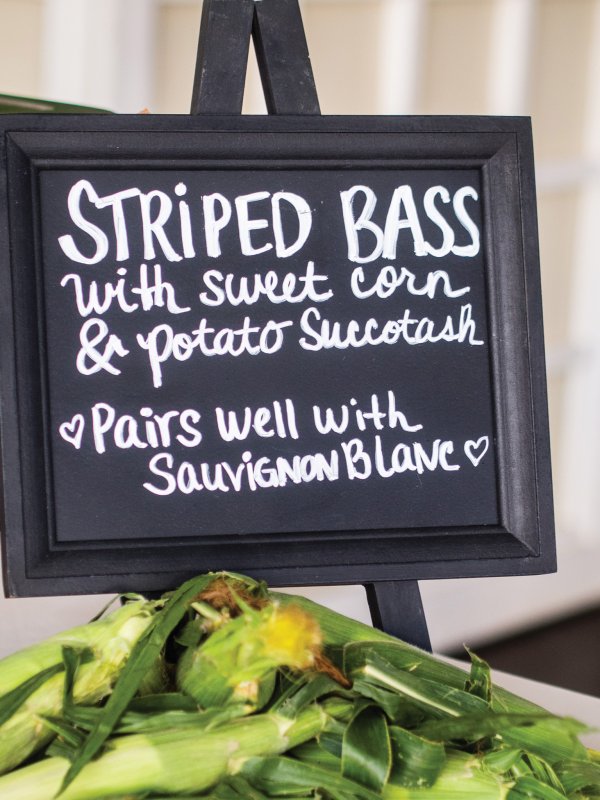 STRIPED BASS
with sweet corn
& potato Succotash
♡ Pairs well with
Sauvignon Blanc ♡